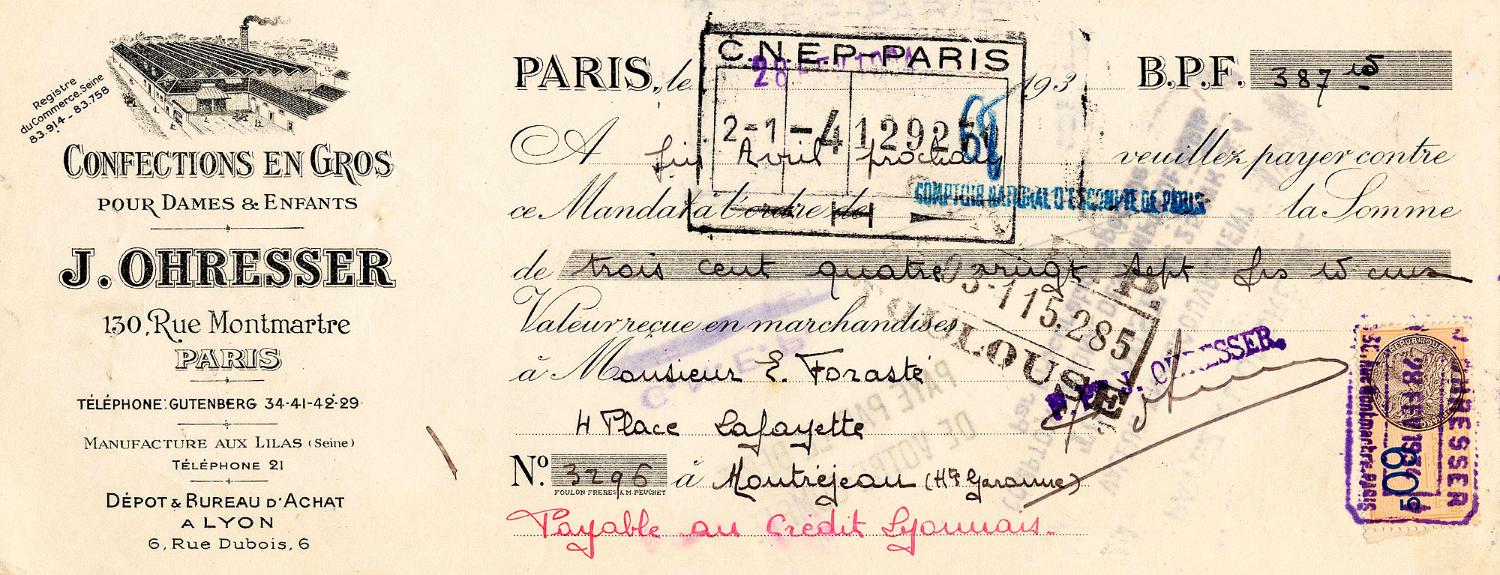 Registre
du Commerce.Seine
83.914 - 83.758
CONFECTIONS EN GROS
POUR DAMES & ENFANTS
J. OHRESSER
130, RUE MONTMARTRE
PARIS
TÉLÉPHONE: GUTENBERG 34-41-42-29
MANUFACTURE AUX LILAS (Seine)
TÉLÉPHONE 21
DÉPOT & BUREAU D'ACHAT
A LYON
6, Rue Dubois, 6
PARIS, le 28 193 B.P.F. 387 15
C.N.E.P-PARIS
2-1 -4
A fin Avril prochain veuillez payer contre
ce Mandat à l'ordre de COMPTOIR NATIONAL D'ESCOMPTE DE PARIS la Somme
de trois cent quatre vingt sept frs 15 cmes
Valeur reçue en marchandises
115.285
TOULOUSE
à Monsieur E. Forasté
J. OHRESSER.
4 Place Lafayette
N° 3296 à Montréjeau (Hte Garonne)
FOULON FRERES A.M. PEUCHET
Payable au Crédit Lyonnais.
OHRESSER
28 FEV 193
Rue Montmartre. PARIS